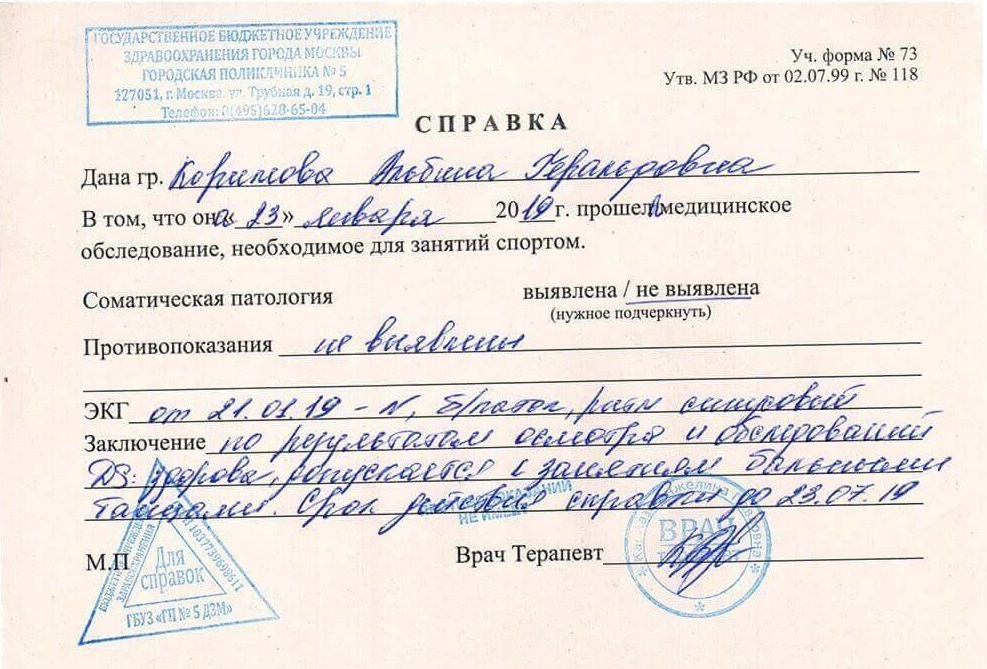 ГОСУДАРСТВЕННОЕ БЮДЖЕТНОЕ УЧРЕЖДЕНИЕ
ЗДРАВООХРАНЕНИЯ ГОРОДА МОСКВЫ
ГОРОДСКАЯ ПОЛИКЛИНИКА № 5
127051, г. Москва, ул. Трубная д. 19, стр. 1
Телефон: 8(495)628-65-04
Уч. форма № 73
Утв. МЗ РФ от 02.07.99 г. № 118
СПРАВКА
Дана гр. Альбина Геральдовна
В том, что она « 23 » января 2019 г. прошел медицинское
обследование, необходимое для занятий спортом.
Соматическая патология выявлена / не выявлена
(нужное подчеркнуть)
Противопоказания не выявлены
ЭКГ от 21.01.19 - N, б/патол, ритм синусовый
Заключение по результатам осмотра и обследований
DS: здорова, допускается к занятиям бальными
танцами. Срок действия справки до 23.07.19
НЕ ИМЕЕТ
М.П Врач Терапевт
ВРАЧ
Для
справок
ГБУЗ «ГП № 5 ДЗМ»